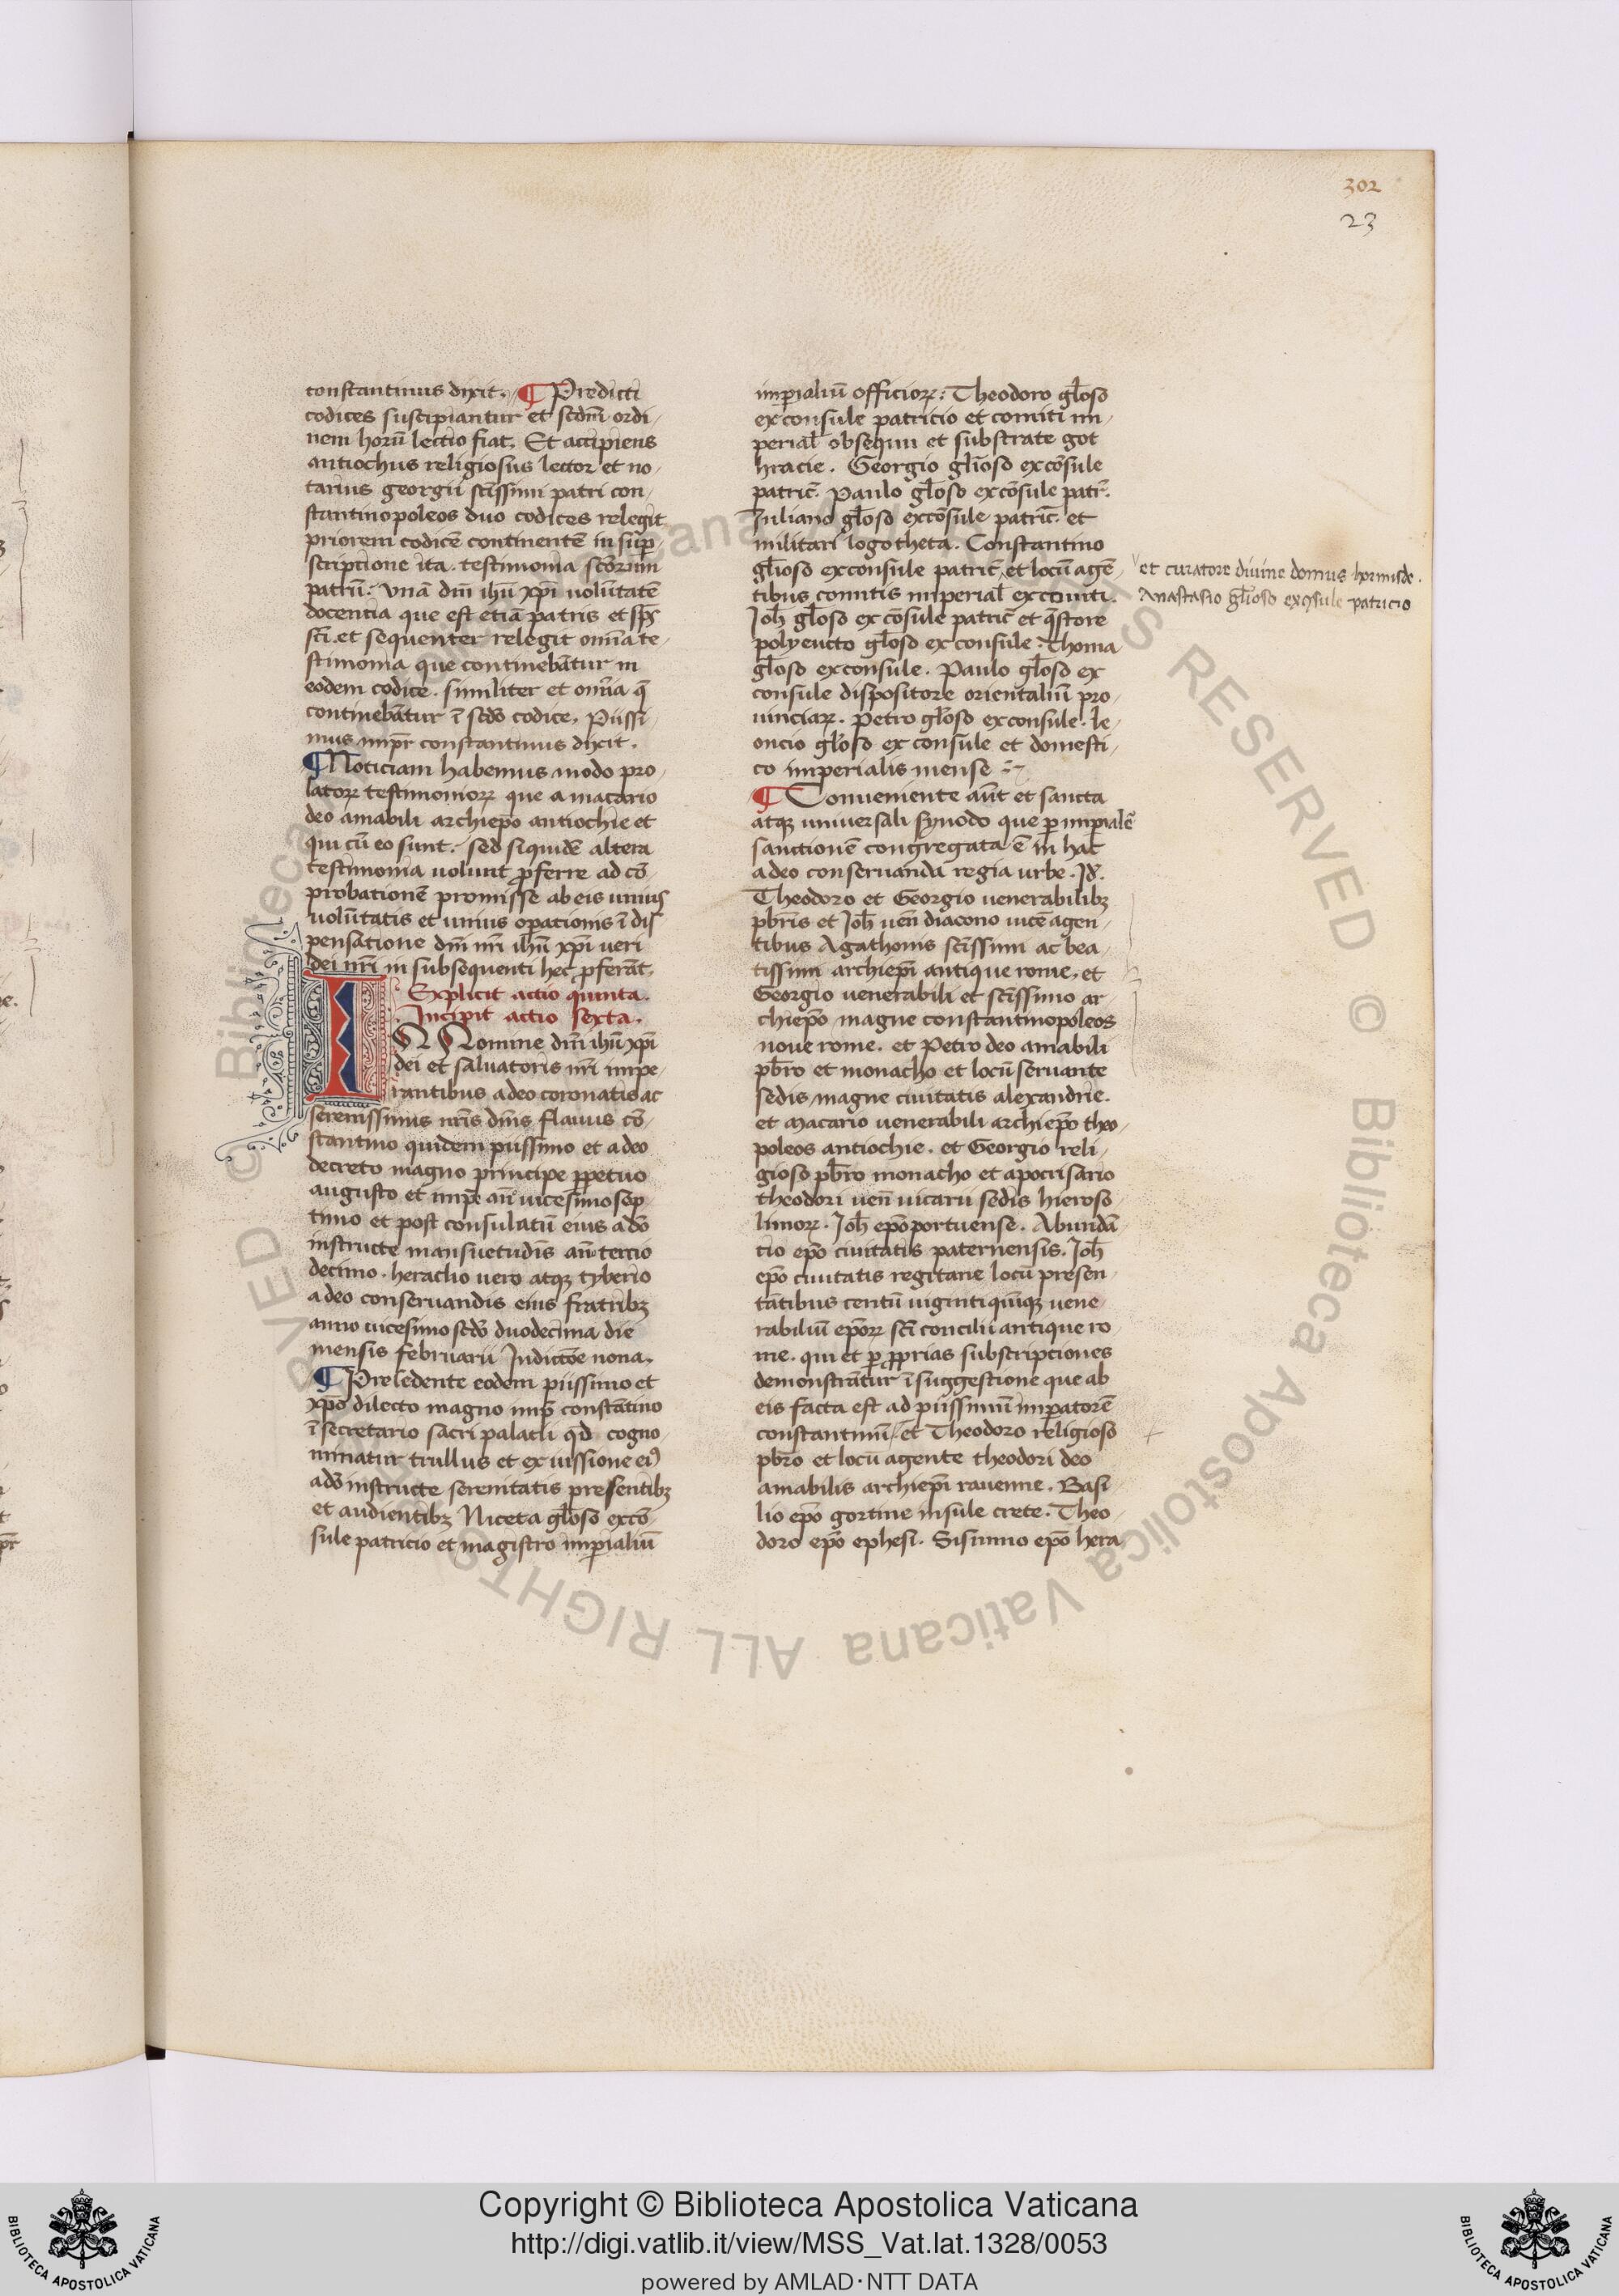 302
23
constantinus dixit. ¶ Predicti
codices suscipiantur et scdm̄ ordi-
nem horū lectio fiat. Et accipiens
antiochus religiosus lector et no-
tarius georgii sc̄issimi patri con-
stantinopoleos duo codices relegit
priorem codicē continentē in sup̄-
scriptione ita. testimonia sc̄orum
patrū. vnā dn̄i ihū xp̄i volūtatē
docentia que est etiā patris et sp̄s
sc̄i. et sequenter relegit om̄ia te-
stimonia que continebātur in
eodem codice. similiter et om̄ia q̄
continebātur ī scdō codice. Piissi-
mus imp̄r constantinus dixit.
¶ Noticiam habemus modo pro-
latoꝝ testimonioꝝ que a macario
deo amabili archiepō antiochie et
qui cū eo sunt. sed siquidē altera
testimonia uolunt ꝓferre ad cō-
probationē promisse ab eis unius
uolūtatis et unius oꝑacionis ī dis
pensatione dn̄i nr̄i ihū xp̄i ueri
dei nr̄i in subsequenti hec ꝓferāt.
Explicit actio quinta.
Incipit actio sexta.
IN Nomine dn̄i ihū xp̄i
dei et saluatoris nr̄i impe-
rantibus a deo coronatis ac
serenissimis nr̄is dn̄is flauiis cō-
stantino quidem piissimo et a deo
decreto magno principe ꝑpetuo
augusto et imp̄e an̄ uicesimo sep
timo et post consulatū eius a dō
instructe mansuetudis an̄ tercio
decimo. heraclio uero atqꝫ tyberio
a deo conseruandis eius fratribꝫ
anno uicesimo scdō duodecima die
mensis februarii Indictōe nona.
¶ Precedente eodem piissimo et
xp̄o dilecto magno imp̄ constātino
ī secretario sacri palatii qd̄ cogno-
minatur trullus et ex iussione eiꝰ
a dō instructe serenitatis presentibꝫ
et audientibꝫ Niceta gl̄oso excō-
sule patricio et magistro imꝑialiū
imꝑialiū officioꝝ: Theodoro gl̄oso
exconsule patricio et comiti im-
perial̄ obsequii et substrate got
hracie. Georgio gl̄ioso excōsule
patric̄. Paulo gl̄oso excōsule patr̄.
Iuliano gl̄oso excōsule patric̄. et
militari logotheta. Constantino
gl̄ioso exconsule patric̄ et locū agē-
tibus comitis imperial̄ excomiti.
Joh̄ gl̄oso ex cōsule patric̄ et q̄store
polyeucto gl̄oso ex consule. Thoma
gl̄oso exconsule. Paulo gl̄oso ex
consule dispositore orientaliū pro-
uinciaꝝ. Petro gl̄oso exconsule. le-
oncio gl̄oso ex consule et domesti-
co imperialis mense
et curatore diuine domus hormisde.
Anastasio gl̄ioso exꝯsule patricio
¶ Conueniente aūt et sancta
atqꝫ uniuersali synodo que ꝑ imꝑialē
sanctionē congregata ē in hac
a deo conseruanda regia urbe. Id̄.
Theodoro et Georgio uenerabilibꝫ
pb̄ris et Joh̄ uen̄ diacono uicē agen-
tibus Agathonis sc̄issimi ac bea-
tissimi archiepī antique rome. et
Georgio uenerabili et sc̄issimo ar-
chiepō magne constantinopoleos
noue rome. et Petro deo amabili
pb̄ro et monacho et locū seruante
sedis magne ciuitatis alexandrie.
et Macario uenerabili archiepō theo-
poleos antiochie. et Georgio reli-
gioso pb̄ro monacho et apocrisario
theodori uen̄ uicarii sedis hieroso-
limoꝝ. Joh̄ epō portuense. Abundā-
tio epō ciuitatis paternensis. Joh̄
epō ciuitatis regitane locū presen-
tātibus centū uiginti quīqꝫ uene-
rabiliū epōꝝ sc̄i concilii antique ro-
me. qui et ꝑ ꝓprias subscriptiones
demonstrātur ī suggestione que ab
eis facta est ad piissimū imꝑatorē
constantinū. et Theodoro religioso
pb̄ro et locū agente theodori deo
amabilis archiepī rauenne. Basi-
lio epō gortine insule crete. Theo-
doro epō ephesi. Sisinnio epō hera-
Copyright © Biblioteca Apostolica Vaticana
http://digi.vatlib.it/view/MSS_Vat.lat.1328/0053
powered by AMLAD·NTT DATA
BIBLIOTECA APOSTOLICA VATICANA
BIBLIOTECA APOSTOLICA VATICANA
© Biblioteca Apostolica Vaticana ALL RIGHTS RESERVED